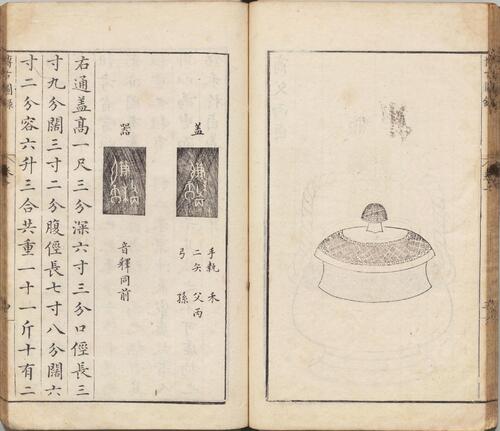 盖
手執 禾
二矢 父丙
弓 孫
器
音釋同前
右通盖髙一尺三分深六寸三分口徑長三
寸九分闊三寸二分腹徑長七寸八分闊六
寸二分容六升三合共重一十一斤十有二